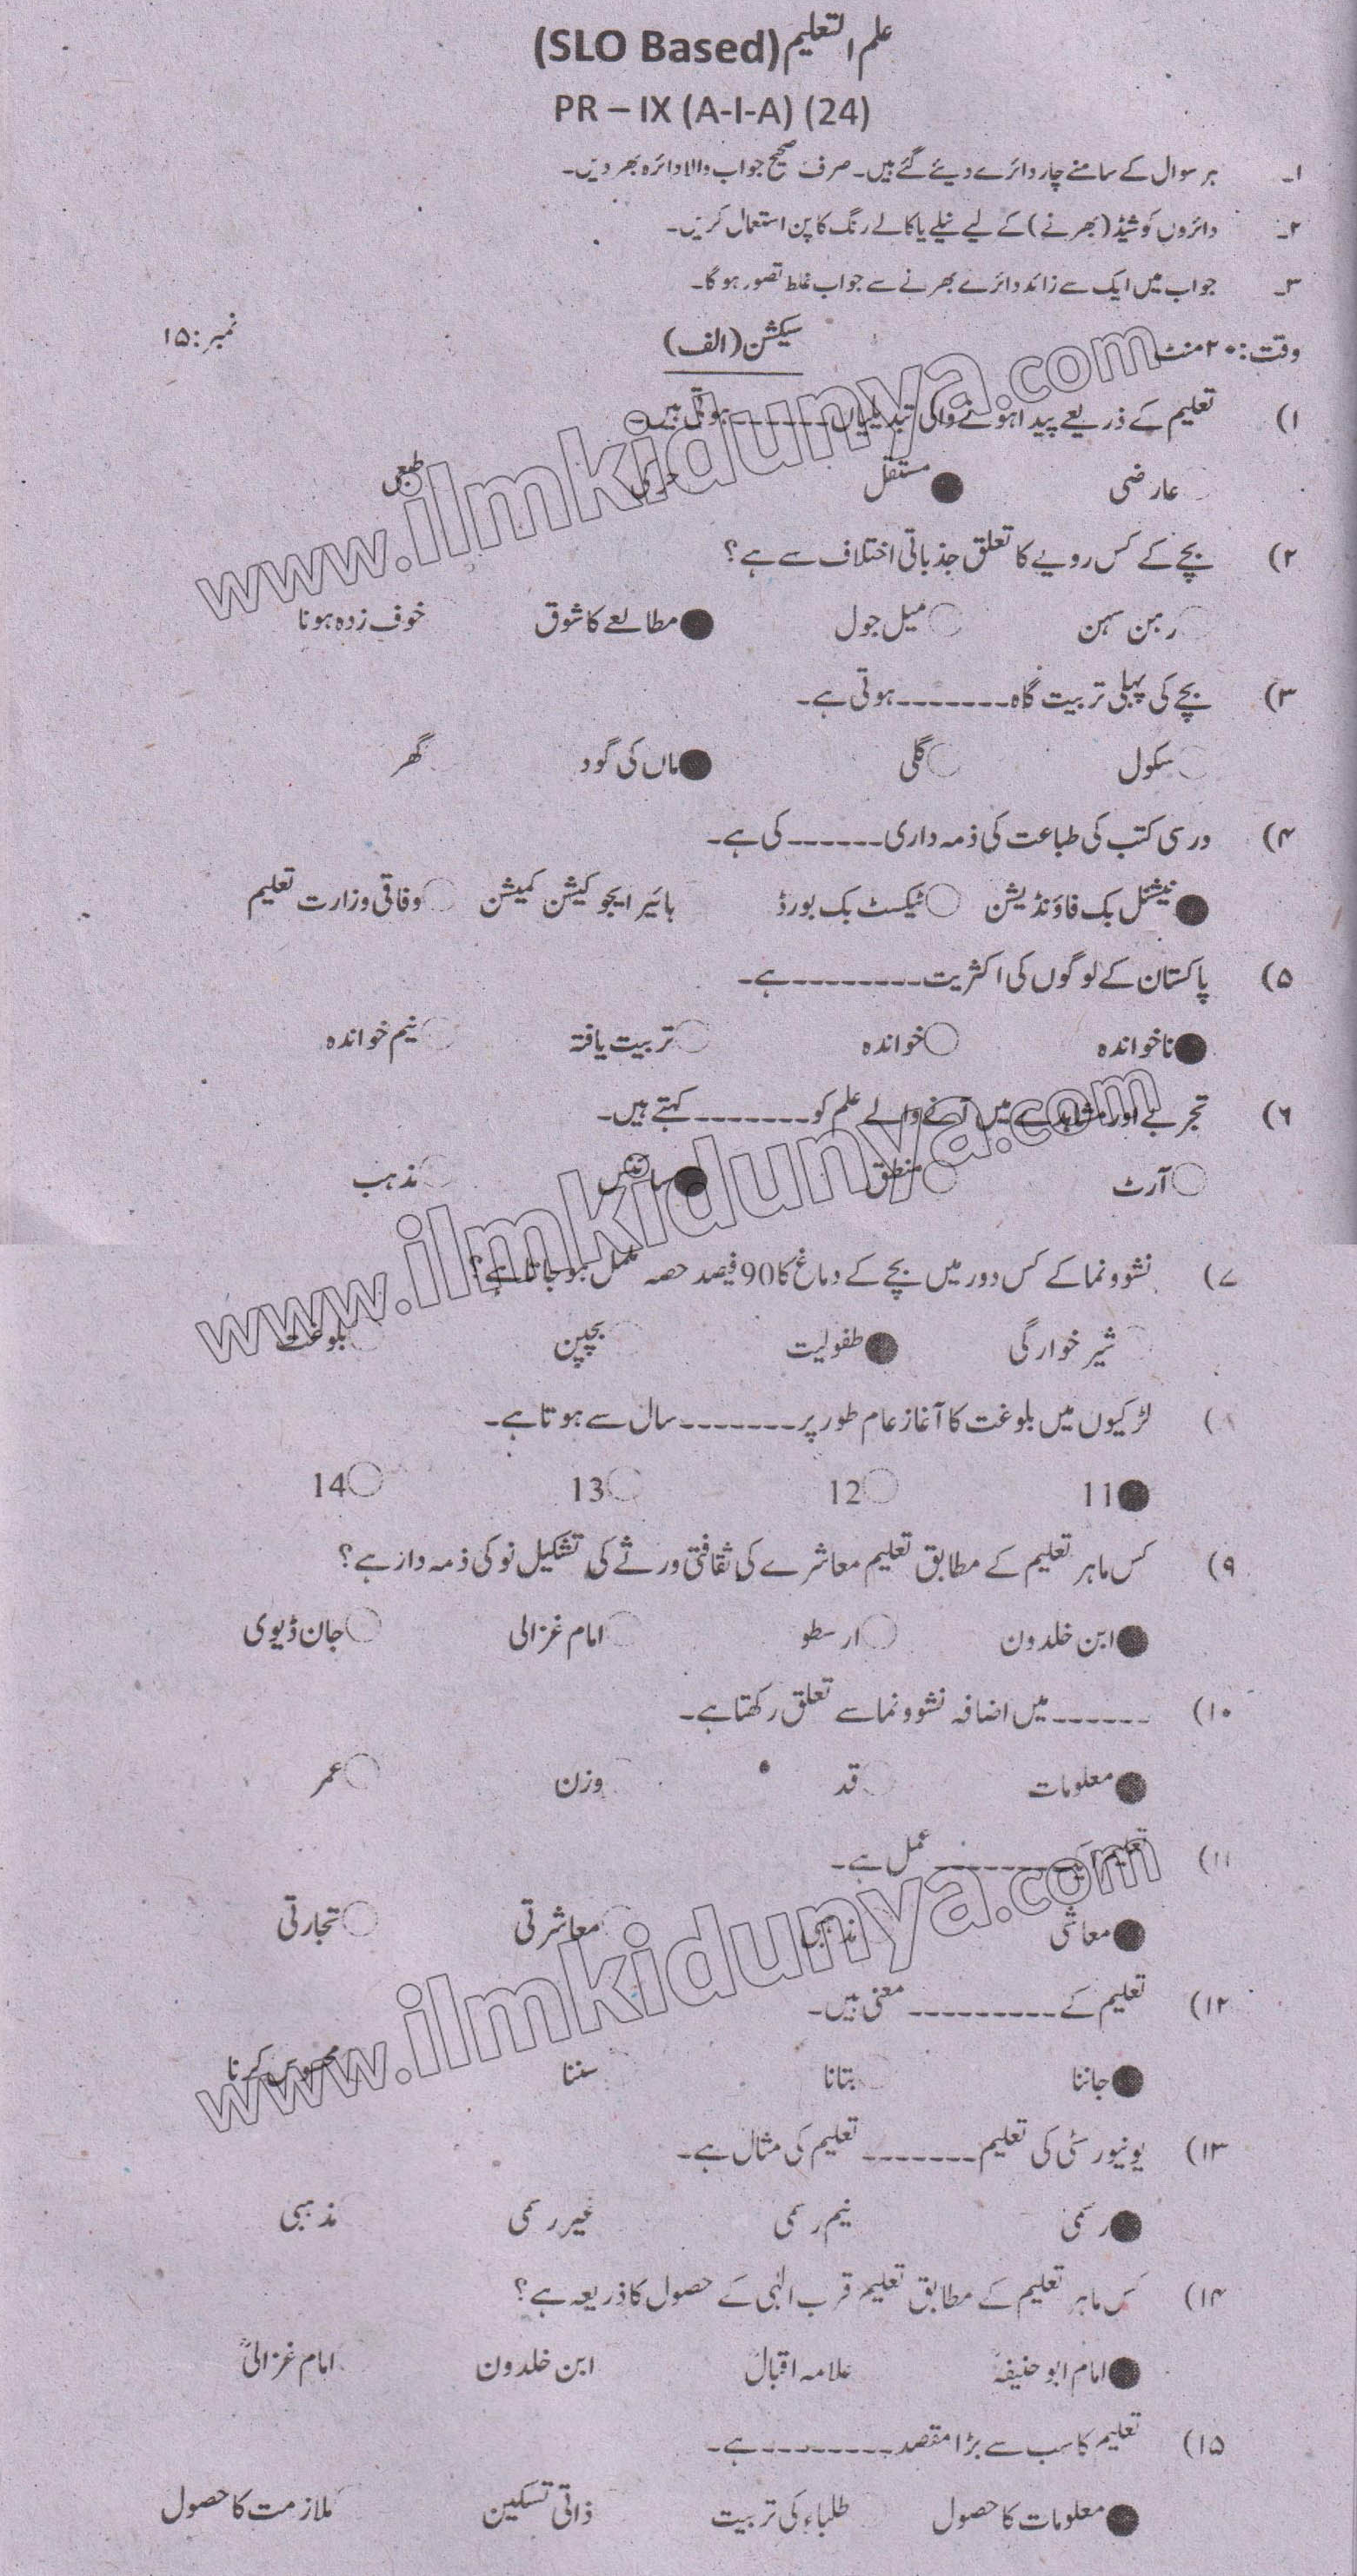 علم التعلیم (SLO Based)
PR – IX (A-I-A) (24)
۱۔ ہر سوال کے سامنے چار دائرے دیئے گئے ہیں۔ صرف صحیح جواب والا دائرہ بھر دیں۔
۲۔ دائروں کو شیڈ (بھرنے) کے لیے نیلے یا کالے رنگ کا پن استعمال کریں۔
۳۔ جواب میں ایک سے زائد دائرے بھرنے سے جواب غلط تصور ہو گا۔
وقت: ۲۰ منٹ سیکشن (الف) نمبر: ۱۵
۱) تعلیم کے ذریعے پیدا ہونے والی تبدیلیاں ------- ہوتی ہیں۔
عارضی مستقل طبعی
۲) بچے کے کس رویے کا تعلق جذباتی اختلاف سے ہے؟
رہن سہن میل جول مطالعے کا شوق خوف زدہ ہونا
۳) بچے کی پہلی تربیت گاہ ------- ہوتی ہے۔
سکول گلی ماں کی گود گھر
۴) درسی کتب کی طباعت کی ذمہ داری ------ کی ہے۔
نیشنل بک فاؤنڈیشن ٹیکسٹ بک بورڈ ہائیر ایجوکیشن کمیشن وفاقی وزارت تعلیم
۵) پاکستان کے لوگوں کی اکثریت -------- ہے۔
ناخواندہ خواندہ تربیت یافتہ نیم خواندہ
۶) تجربے اور مشاہدے میں آنے والے علم کو ------- کہتے ہیں۔
آرٹ منطق سائنس مذہب
۷) نشوونما کے کس دور میں بچے کے دماغ کا 90 فیصد حصہ مکمل ہو جاتا ہے؟
شیر خوارگی طفولیت بچپن بلوغت
۸) لڑکیوں میں بلوغت کا آغاز عام طور پر ------- سال سے ہوتا ہے۔
11 12 13 14
۹) کس ماہر تعلیم کے مطابق تعلیم معاشرے کی ثقافتی ورثے کی تشکیل نو کی ذمہ دار ہے؟
ابن خلدون ارسطو امام غزالی جان ڈیوی
۱۰) ------ میں اضافہ نشوونما سے تعلق رکھتا ہے۔
معلومات قد وزن عمر
۱۱) تعلیم ایک -------- عمل ہے۔
معاشی مذہبی معاشرتی تجارتی
۱۲) تعلیم کے --------- معنی ہیں۔
جاننا بتانا سننا محسوس کرنا
۱۳) یونیورسٹی کی تعلیم ------- تعلیم کی مثال ہے۔
رسمی نیم رسمی غیر رسمی مذہبی
۱۴) کس ماہر تعلیم کے مطابق تعلیم قرب الٰہی کے حصول کا ذریعہ ہے؟
امام ابو حنیفہؒ علامہ اقبالؒ ابن خلدون امام غزالیؒ
۱۵) تعلیم کا سب سے بڑا مقصد --------- ہے۔
معلومات کا حصول طلباء کی تربیت ذاتی تسکین ملازمت کا حصول
www.ilmkidunya.com
www.ilmkidunya.com
www.ilmkidunya.com